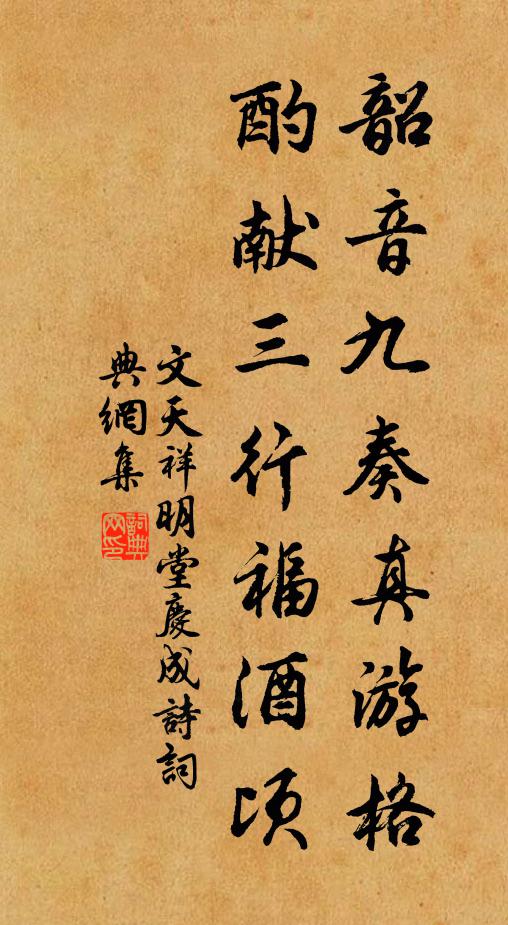 韶音九奏真游格
酌献三行福酒頃
文天祥明堂慶成詩詞
典網集
詞典
网印